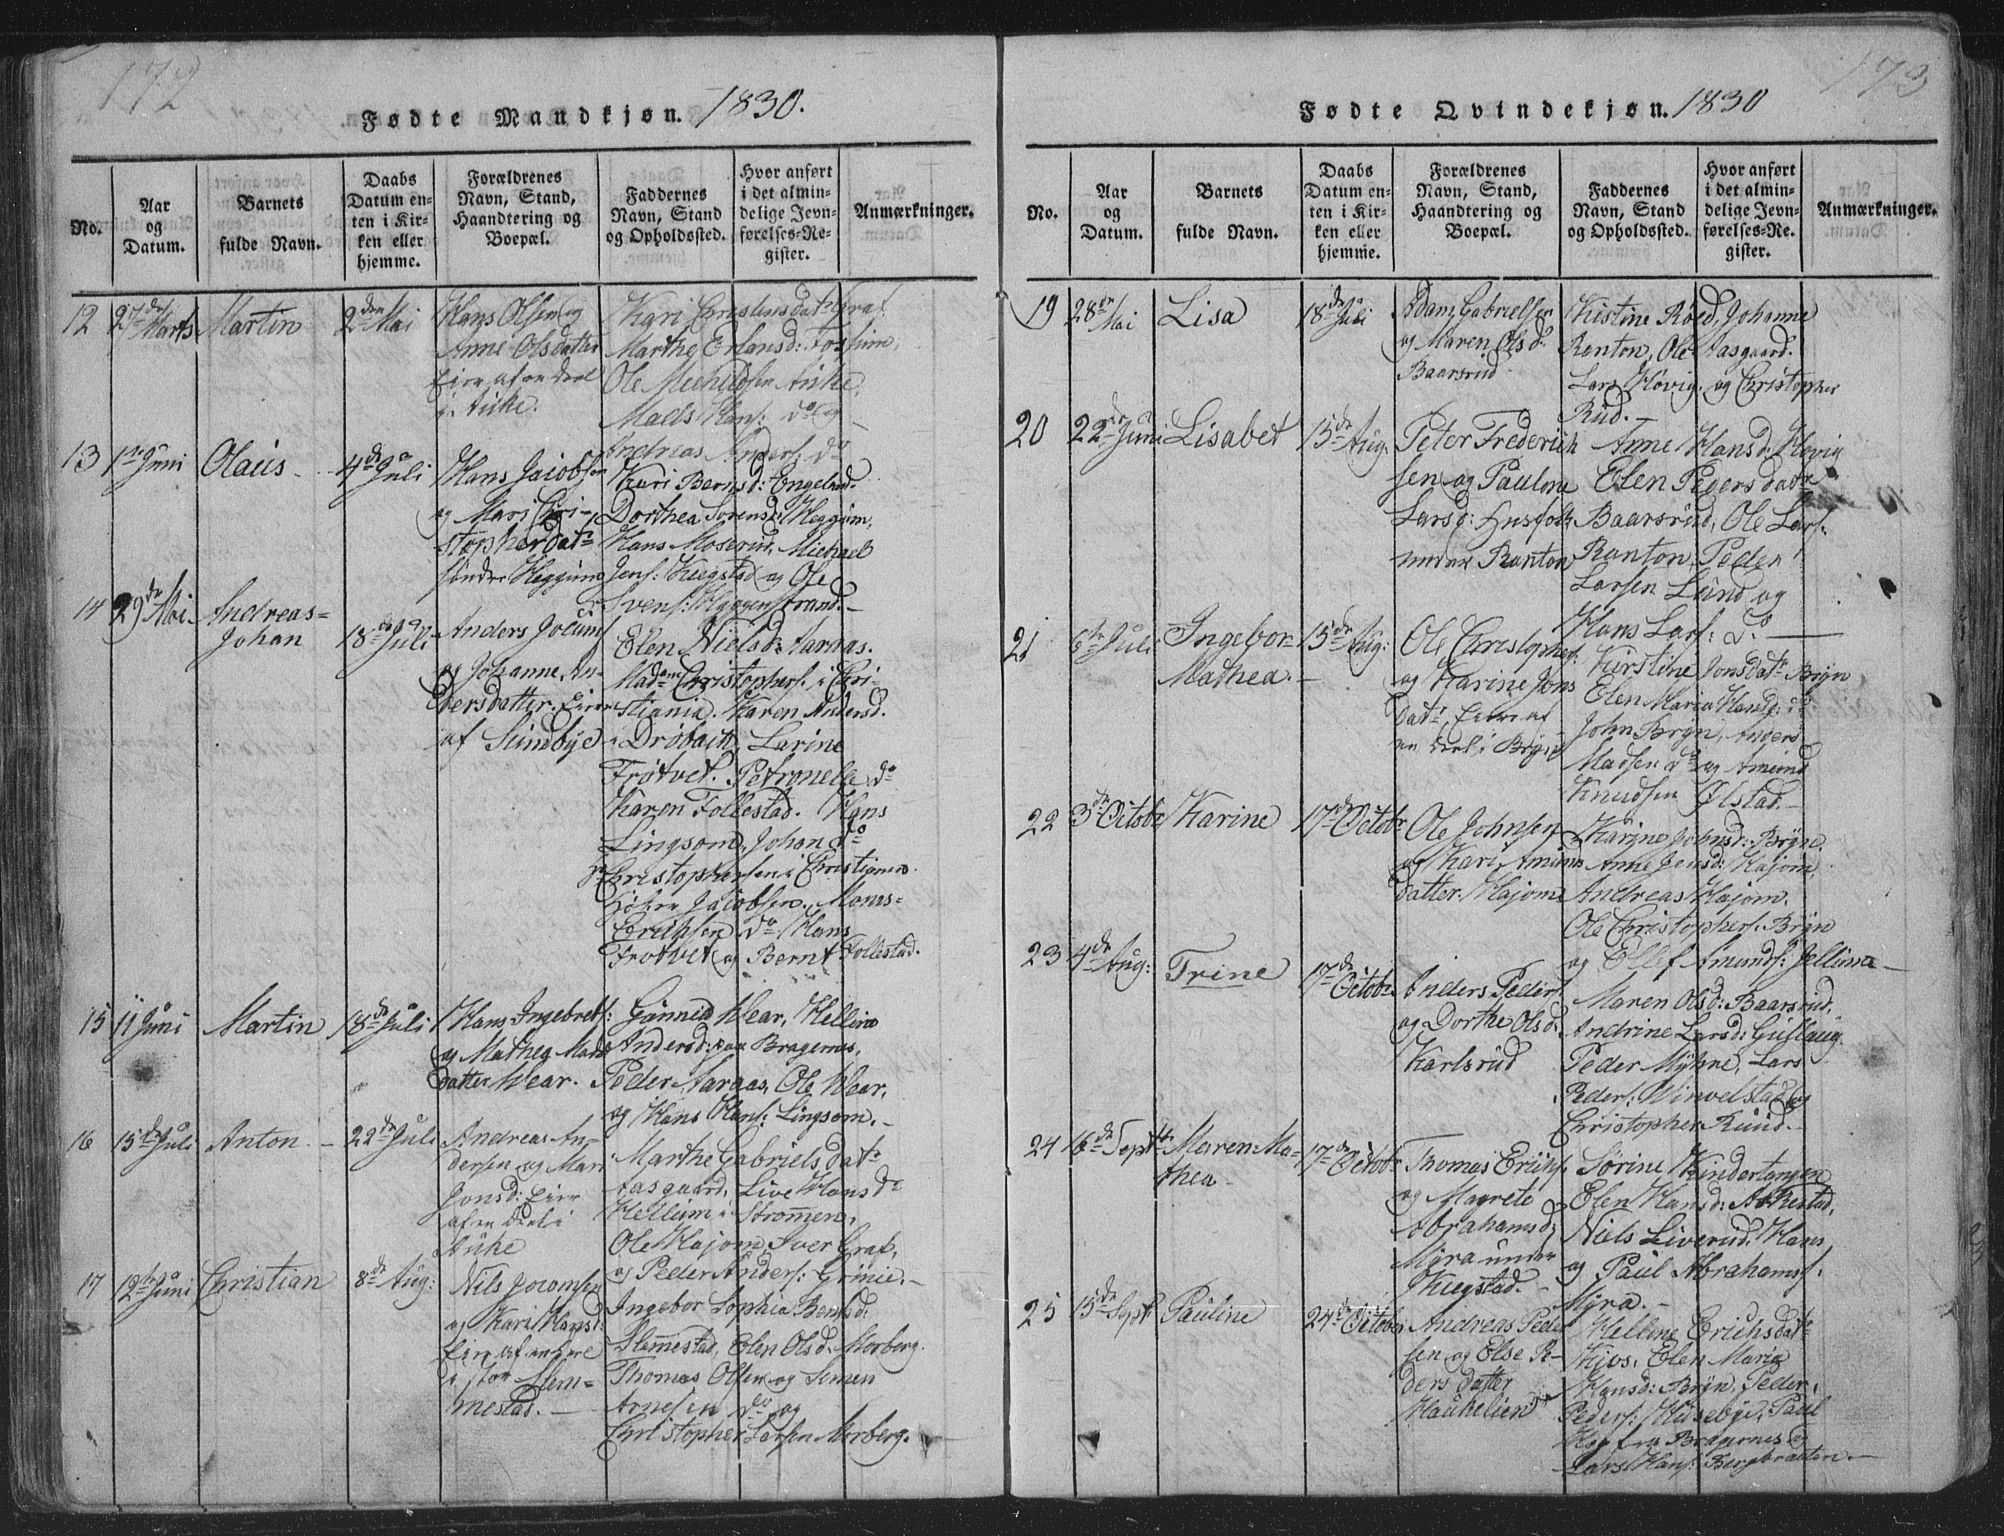 172
Fødte Mandkjøn. 1830.
No.
Aar
og
Datum.
Barnets
fulde Navn.
Daabs
Datum en-
ten i Kir-
ken eller
hjemme.
Forældrenes
Navn, Stand,
Haandtering og
Boepæl.
Faddernes
Navn, Stand
og Opholdssted.
Hvor anført
i det almin-
delige Jevn-
førelses-Re-
gister.
Anmærkninger.
12
27de Marts
Martin
2den Mai
Hans Olsen og
Anne Olsdatter
Eier af en Deel
i Aiske.
Kari Christensdatr Graf
Marthe Erlansd: Fossum,
Ole Michelsen Aiske,
Mads Hans: do og
Andreas Anders: do
13
1te Juni
Olaus
4de Juli
Hans Jacobsen
og Mari Chri-
stopherdatr
søndre Heggum
Kari Bernsd: Engelsrud.
Dorthea Sørensd: Heggum,
Hans Moserud, Michael
Jens: Kiegstad og Ole
Svens: Heggumstrand.
14
29de Mai
Andreas
Johan
18de Juli
Anders Jocums:
og Johanne An-
dersdatter. Eiere
af Sundbye
Elen Nielsd: Aaraas.
Madam Christophers: i Chri-
stiania. Karen Andersd.
i Drøbach, Larine
Trøtvet. Petronelle do
Karen Follestad. Hans
Lingsom, Johan do
Christophersen i Christiania.
Jacobsen. Mons
Erichsen do. Hans
Trotvet og Bernt Follestad.
15
11 Juni
Martin
18de Juli
Hans Ingebrets:
og Mathea Mads
datter Wear.
Gunnild Wear, Helline
Andersd: paa Bragernes,
Peder Aaraas, Ole Wear,
og Hans Hans: Lingsom.
16
15de Juli
Anton
22de Juli
Andreas An-
dersen og Mari
Jonsd: Eier
af en Deel i
Aiske
Marthe Gabrielsdatr
Aasgaard, Live Hansdr
Hellum i Strømmen,
Ole Hajom, Iver Graf,
og Peder Anders: Grinie.
17
12te Juni
Christian
8de Aug:
Nils Jocomsen
og Kari Hansd:
Eier af en Deel
i stor Slem-
mestad.
Ingebor Sophia Berntsd:
Slemestad, Elen Olsd. Morberg.
Thomas Olsen og Simen
Arnesen do og
Christopher Larsen Morberg.
173
Fødte Qvindekjøn. 1830
No.
Aar
og
Datum.
Barnets
fulde Navn.
Daabs
Datum en-
ten i Kir-
ken eller
hjemme.
Forældrenes
Navn, Stand,
Haandtering og
Boepæl.
Faddernes
Navn, Stand
og Opholdssted.
Hvor anført
i det almin-
delige Jevn-
førelses-Re-
gister.
Anmærkninger.
19
28de Mai
Lisa
18de Juli
Adam Gabrielsen
og Maren Olsdr
Baarsrud
Kistine Røed, Johanne
Ranton, Ole Aasgaard.
Lars Høvig, og Christopher
Rud.
20
22de Juni
Lisabet
15de Aug.
Peter Frederich
sen og Pauline
Larsd: Husfolk
under Ranton
Anne Hansd: Høvig
Elen Pedersdatr
Baarsrud, Ole Lars:
Ranton, Peder
Larsen Lund og
Hans Lars: do
21
6te Juli
Ingebor
Mathea.
15de Aug:
Ole Christophers:
og Karine Jons
datr, Eiere af
en Deel i Brøyn
Kirstine Jonsdatr Brøyn
Elen Maria Hansd: do
John Brøyn, Anders
Madsen do og Amund
Knudsen Ølstad.
22
3de Octobr
Karine
17de Octobr
Ole Johnsen
og Kari Amunds
datter Hajom
Karine Johnsd: Brøyn,
Anne Jensd: Hajom,
Andreas Hajom.
Ole Christophers: Brøyn
og Ellef Amunds: Jellum
23
4de Aug:
Trine
17de Octobr
Anders Peders:
og Dorthe Olsd:
Karlsrud
Maren Olsd: Baarsrud,
Andrine Larsd: Gullaug.
Peder Myhre, Lars
Peders: Winvelstad og
Christopher Ruud.
24
16de Septbr
Maren Ma-
thea.
17de Octobr
Thomas Erichs:
og Magrete
Abrahamsd:
Myra under
Kiegstad.
Sørine Kindertangen
Elen Hansd: Aabestad,
Niels Liverud, Hans
og Paul Abrahams:
Myra.
25
15de Septbr
Pauline
24de Octobr
Andreas Peder
sen og Else Pe-
dersdatter
Haukelien
Helline Erichsdatr
Kjos, Elen Maria
Hansd: Brøyn, Peder
Peders: Huseby, Paul
fra Bragernes og
Lars Hans: Bergbraaten.